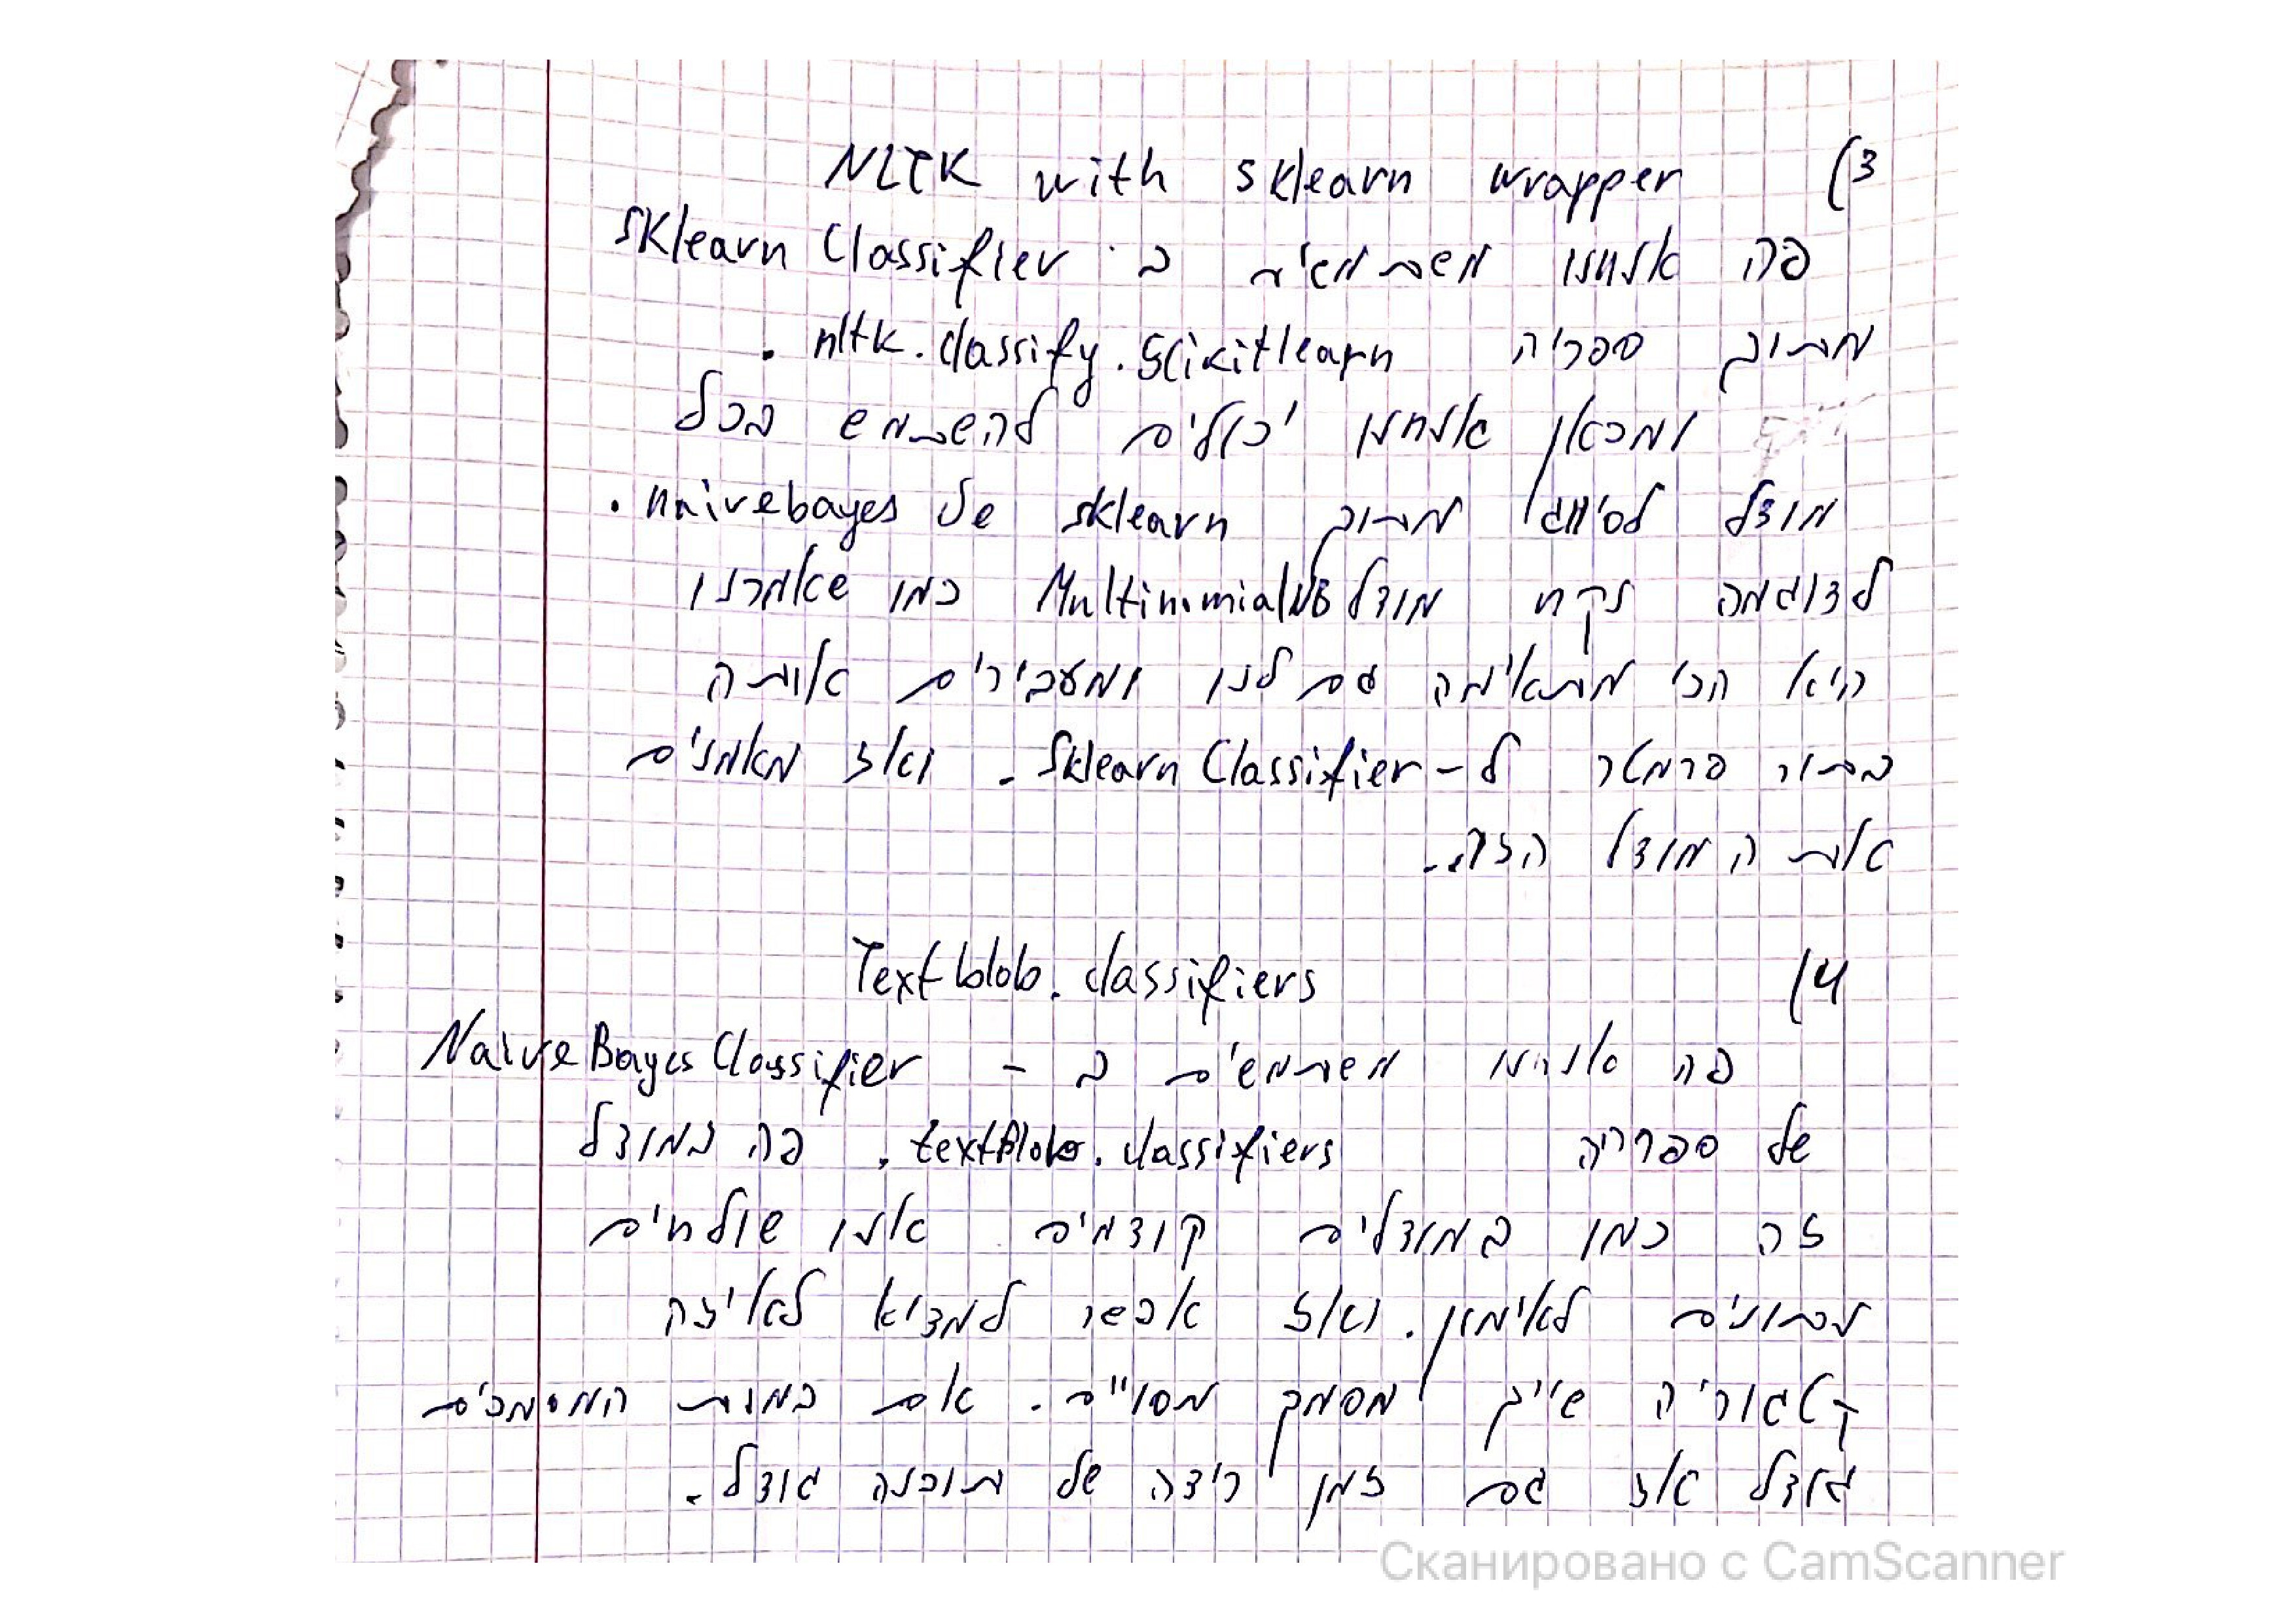 3) NLTK with sklearn wrapper
פה אנחנו משתמשים ב Sklearn Classifier
מתוך ספריה nltk.classify.Scikitlearn .
ומכאן אנחנו יכולים להשתמש בכל
מודל לסיווג מתוך sklearn של naivebayes .
לדוגמה נקח מודל MultinomialNB כמו שאמרנו
היא הכי מתאימה גם לנו ומעבירים אותה
בתור פרמטר ל-Sklearn Classifier. ואז מאמנים
את המודל הזה.
4) Textblob.classifiers
פה אנחנו משתמשים ב - NaiveBayes Classifier
של ספרייה textblob.classifiers . פה במודל
זה כמו במודלים קודמים אנו שולחים
נתונים לאימון. ואז אפשר למצוא לאיזה
קטגוריה שייך מסמך מסויים. אם כמות המסמכים
גודל אז גם זמן ריצה של תוכנה גודל.
Сканировано с CamScanner